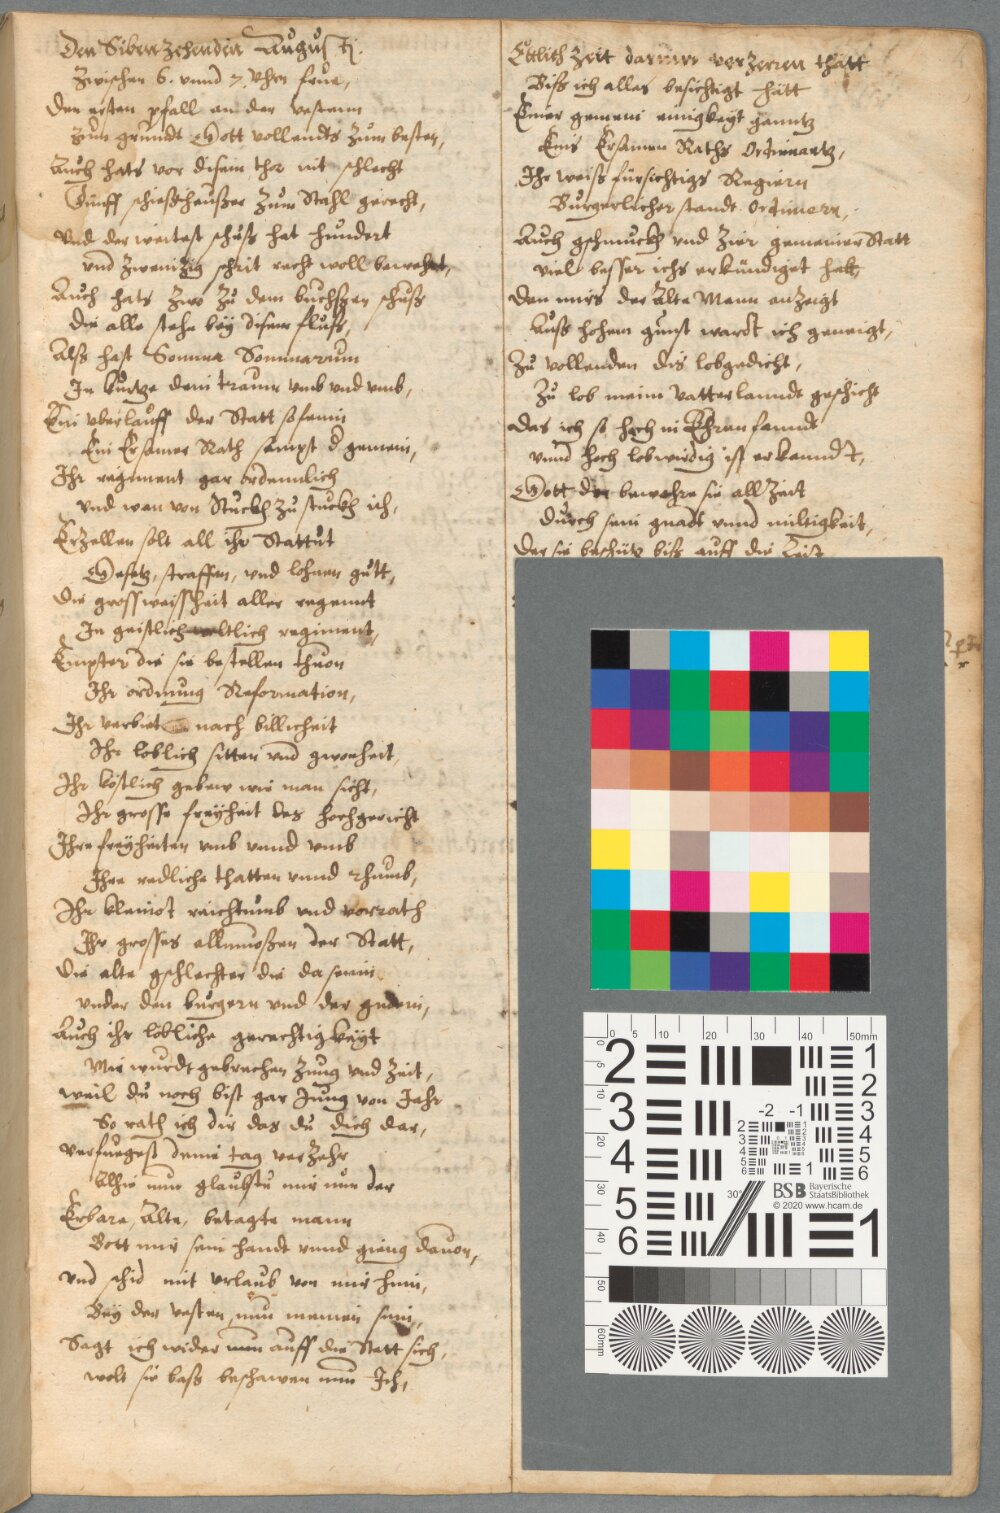 Den Sibenzehenden Augusti.
Zwischen 6. vnnd 7. Vhrn frue,
Den ersten pfall an der vestenn
Zum grundt Gott vollendts zum besten,
Auch hats vor disem thor nit schlecht
Fünff schießheußer zum Stahl gerecht,
Vnd der weitest schuß hat hundert
vnd zwenizig schrit recht woll bewehrt,
Auch hats zwo zu dem buchsen schuß
Die alle stehn bey disem fluß,
Alß hast Somma Sommarum
In kurtze dein traum vmb vnd vmb,
Ein vberlauff der Statt so fein
Ein Ersamer Rath sampt d gemein,
Ihr regiment gar ordennlich
vnd wan von Stuckh zu stuckh ich,
Erzellen solt all ihr Stattut
Gesetz, straffen, vnd lohnen gutt,
Die gross weissheit aller regennt
In geistlich weltlich regiment,
Empter die sie bestellen thuon
Ihr ordnung Reformation,
Ihr verbiet nach billicheit
Ihr loblich sitten vnd gwonheit,
Ihr köstlich gebew wie man sicht,
Ihr grosse freyheit des hochgericht
Ihre freyheiten vmb vnnd vmb
Ihre redliche thatten vnnd rhumb,
Ihr kleinot reichtumb vnd vorrath
Ihr grosses allmußen der Statt,
Die alte gschlechter die da sein
vnder den burgern vnd der gmein,
Auch ihr lobliche gerechtigkeyt
Mir wurdt gebrechen zung vnd zeit,
weil du noch bist gar Jung von Jahr
So rath ich dir das du dich dar,
verfuegest deine tag verzehr
Alhie nun glaubstu mir nun der
Erbare, Alte, betagte mann
Bott mir sein handt vnnd gieng dauon,
vnd schid mit vrlaub von mir hin,
Bey der vesten, nun meinem sinn,
Sagt ich wider nun auff die Statt sich,
wolt sie baß beschawen nun Ich,
Ettlich Zeit darinn verzerren thätt
Biß ich alles besichtigt hätt
Einer gemein einigkeyt gantz
Eins Ersamen Raths Ordinantz,
Ihr weiß fürsichtigs Regiern
Burgerlicher standt Ordinern,
Auch gschmuckh vnd Zier gemeiner Statt
viel besser ichs erkündiget hatt
Den mirs der Alte Mann anzeigt
Auß hohem gunst wardt ich geneigt,
Zu vollenden dis lobgedicht,
Zu lob meim Vatterlanndt geschicht
Das ich so hoch in Ehren fanndt
vnnd hoch lobwirdig ist erkanndt,
Gott der bewahre sie all Zeit
Durch sein gnadt vnnd miltigkeit,
Der sie beschütz biß auff die
0 5 10 20 30 40 50mm
2 3 4 5 6
1 2 3 4 5 6
-2 -1
30°
BSB Bayerische StaatsBibliothek
© 2020 www.hcam.de
1
0 5 10 20 30 40 50 60mm